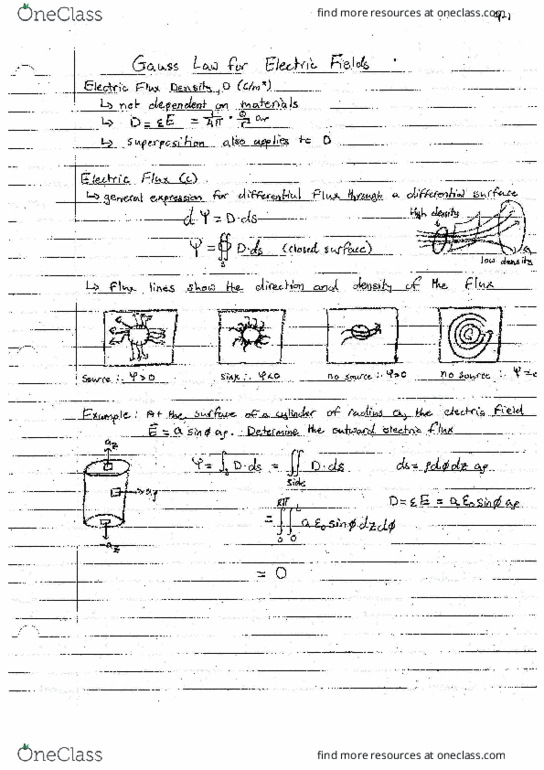 OneClass
find more resources at oneclass.com
Gauss Law for Electric Fields
Electric Flux Density, D (C/m²)
↳ not dependent on materials
↳ D = εE = 1/4π · Q/r² ar
↳ superposition also applies to D
Electric Flux (C)
↳ general expression for differential flux through a differential surface
dΨ = D·ds
High density
Ψ = ∯ D·ds (closed surface)
S
low density
↳ Flux lines show the direction and density of the flux
source ∴ Ψ>0
sink ∴ Ψ<0
no source ∴ Ψ=0
no source ∴ Ψ=
Example: At the surface of a cylinder of radius a, the electric field
E = a sinϕ aρ. Determine the outward electric flux
az
Ψ = ∫s D·ds = ∬ D·ds
ds = ρdϕdz aρ
side
aρ
D = εE = a ε₀ sinϕ aρ
2π L
= ∫∫ a ε₀ sinϕ dz dϕ
0 0
-az
= 0
OneClass
find more resources at oneclass.com